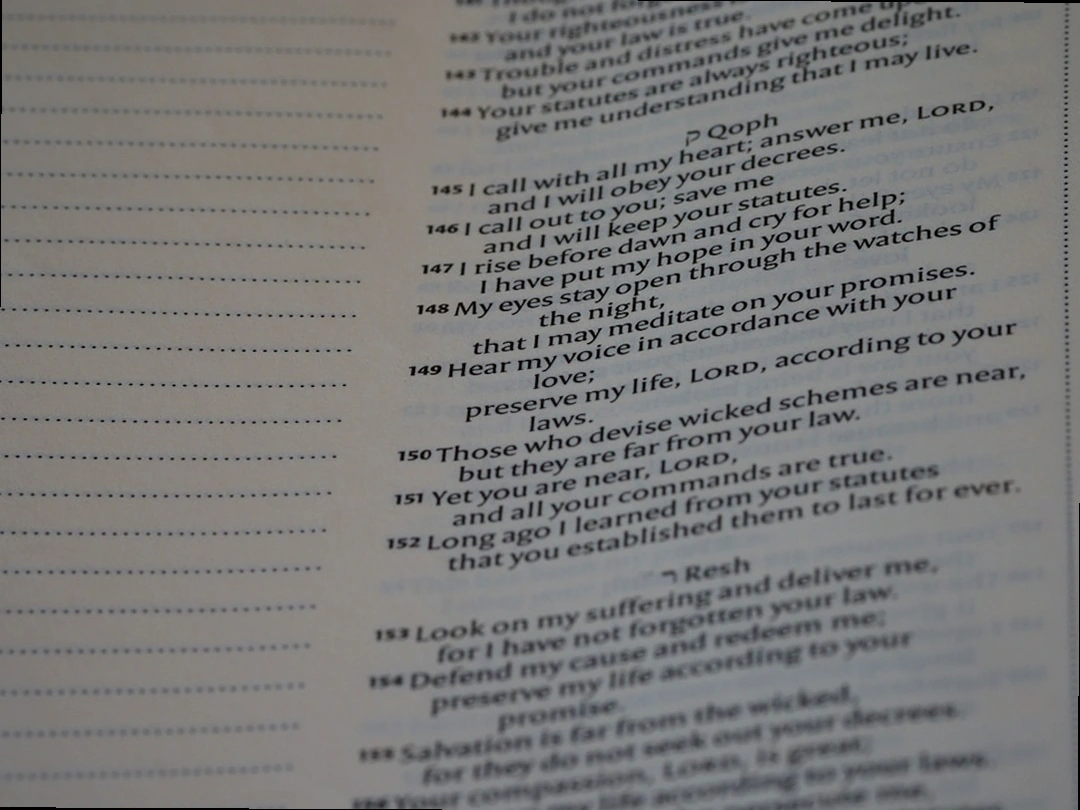 I do not forg
142 Your righteousness
and your law is true.
143 Trouble and distress have come upo
but your commands give me delight.
144 Your statutes are always righteous;
give me understanding that I may live.
ק Qoph
145 I call with all my heart; answer me, LORD,
and I will obey your decrees.
146 I call out to you; save me
and I will keep your statutes.
147 I rise before dawn and cry for help;
I have put my hope in your word.
148 My eyes stay open through the watches of
the night,
that I may meditate on your promises.
149 Hear my voice in accordance with your
love;
preserve my life, LORD, according to your
laws.
150 Those who devise wicked schemes are near,
but they are far from your law.
151 Yet you are near, LORD,
and all your commands are true.
152 Long ago I learned from your statutes
that you established them to last for ever.
ר Resh
153 Look on my suffering and deliver me,
for I have not forgotten your law.
154 Defend my cause and redeem me;
preserve my life according to your
promise.
155 Salvation is far from the wicked,
for they do not seek out your decrees.
156 Your compassion, LORD, is great;
my life according to your laws.